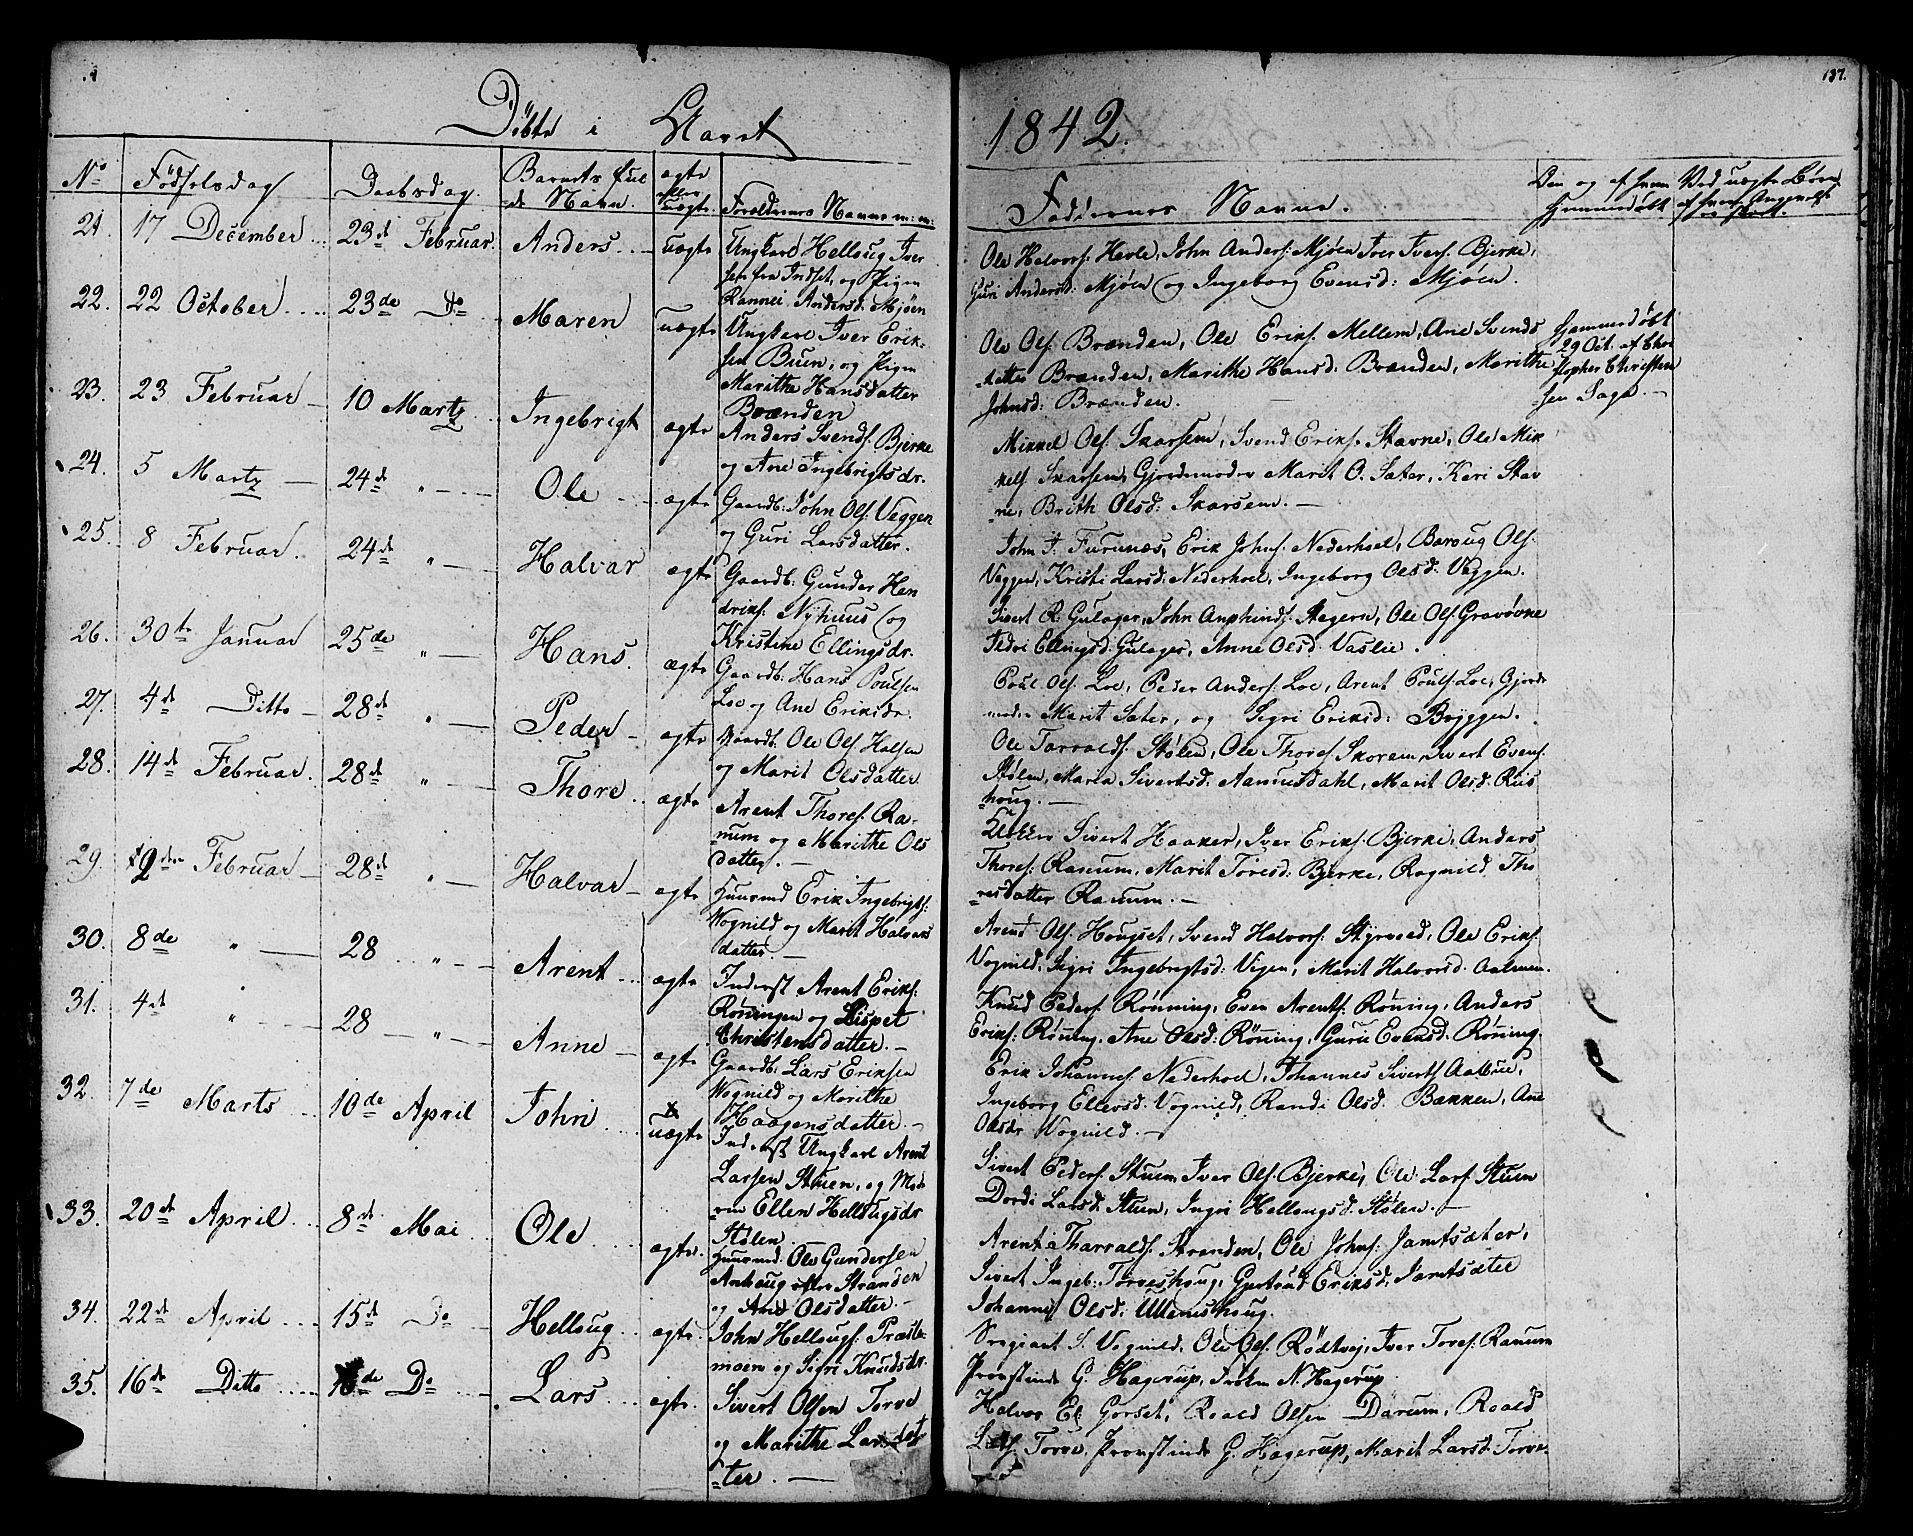 137.
Döbte i Aaret
1842.
No
Födselsdag
Daabsdag.
Barnets ful
de Navn.
ægte
eller
uægte
Forældrenes Navne m: m:
Faddernes Navne.
Den og af hvem
hjemmedöbt
Ved uægte Börn
21 17 December 23de Februar. Anders uægte
Ungkarl Helloug Iver
sen fra Indset, og Pigen
Rannei Andersd: Mjöen
Ole Halvors: Hevle, John Anders: Mjöen Iver Ivers: Bjerke,
Guri Andersd: Mjöen og Ingeborg Evensd: Mjöen.
22. 22 October 23de Do Maren uægte
Ungkarl Iver Erik-
sen Buen, og Pigen
Marithe Hansdatter
Brænden
Ole Ols: Brænden, Ole Eriks: Mellem, Ane Svends
datter Brænden, Marithe Hansd: Brænden, Marithe
Johnsd: Brænden.
hjemmedöbt
29 Oct. af Chri
stopher Christen
sen Sagr.
23. 23 Februar 10 Martz Ingebrigt ægte
Anders Svends: Bjerke
og Ane Ingebrigtsdr.
Mikkel Ols: Skarsem, Svend Eriks: Stavne, Ole Mik
kels: Skarsem, Gjordemoder Marit O. Sæter, Kari Stav
ne, Brith Olsd: Skarsem.
24. 5 Martz 24de " Ole ægte
Gaardb: John Ols: Veggen
og Guri Larsdatter.
John J. Furunæs, Erik Johns: Nederhoel, Baroug Ols:
Veggen, Kristi Larsd: Nederhoel, Ingeborg Olsd: Veggen.
25. 8 Februar. 24de " Halvar ægte
Gaardb: Gunder Hen
driks: Nyhuus og
Kristine Ellingsdr.
Sivert R. Gulager, John Amphinds: Hegern, Ole Ols: Gravövne
Pedri Ellingsd: Gulager, Anne Olsd: Vaslie.
26. 30te Januar 25de " Hans. ægte
Gaardb: Hans Poulsen
Loe og Ane Eriksdr.
Poul Ols: Loe, Peder Anders: Loe, Arent Pouls: Loe, Gjorde
moder Marit Sæter, og Sigri Eriksd: Bryggen.
27. 4de Ditto 28de " Peder ægte
Gaardb. Ole Ols: Halsen
og Marit Olsdatter
Ole Tarralds: Stölen, Ole Thores: Skorem, Sivert Evens:
Stölen, Maren Sivertsd: Aamusdahl, Marit Olsd: Rus
houg.
28. 14de Februar. 28de " Thore ægte
Arent Thores: Ra-
num og Marithe Ols
datter.
Klokker Sivert Haaker, Iver Eriks: Bjerke, Anders
Thores: Ranum, Marit Toresd: Bjerke, Rognild Tho
resdatter Ranum.
29. 12den Februar 28de " Halvar ægte
Huusmd Erik Ingebrigts:
Vognild og Marit Halvars
datter.
Arent Ols: Hougset, Svend Halvors: Styrved, Ole Eriks:
Vognild, Sigri Ingebrigtsd: Vigen, Marit Halvorsd: Aalmen.
30. 8de " 28 " Arent ægte
Inderst Arent Eriks:
Röningen og Lispet
Christensdatter.
Knud Peders: Rönning, Even Arents: Röning, Anders
Eriks: Röning, Ane Olsd: Röning, Guri Evensd: Röning.
31. 4de " 28 " Anne ægte
Gaardb: Lars Eriksen
Vognild og Marithe
Haagensdatter.
Erik Johannes: Nederhoel, Johannes Siverts: Aalbue,
Ingeborg Ellevsd: Vognild, Randi Olsd: Bækken, Ane
Olsdr Vognild.
32. 7de Marts 10de April John x uægte
Inderst Ungkarl Arent
Larsen Stuen, og Mod
ren Ellen Hellougsdr
Stölen.
Sivert Peders: Stuen, Iver Ols: Bjerke, Ole Lars: Stuen
Dordi Larsd: Stuen, Ingri Hellougsd: Stölen.
33. 20de April 8de Mai Ole ægte.
Huusmd: Ole Gundersen
Anhaug eller Stranden
og Ane Olsdatter.
Arent Tharralds: Stranden, Ole Johns: Jamtsæter,
Sivert Ingeb: Torveshoug, Gjertrud Eriksd: Jamtsæter
Johanne Olsd: Utemshoug.
34. 22de April 15de Do Helloug ægte.
John Hellougs: Præste-
moen og Sigri Knudsdr.
Sergiant S. Vognild, Ole Ols: Rödtvej, Iver Tores: Ranum
Provstinde G. Hagerup, Fröken N. Hagerup
35. 16de Ditto de Do Lars ægte.
Sivert Olsen Torve
og Marithe Larsdat
ter.
Halvor E. Gorset, Roald Olsen Dærum, Roald
Lars: Torve, Provstinde G. Hagerup, Marit Larsd: Torve.